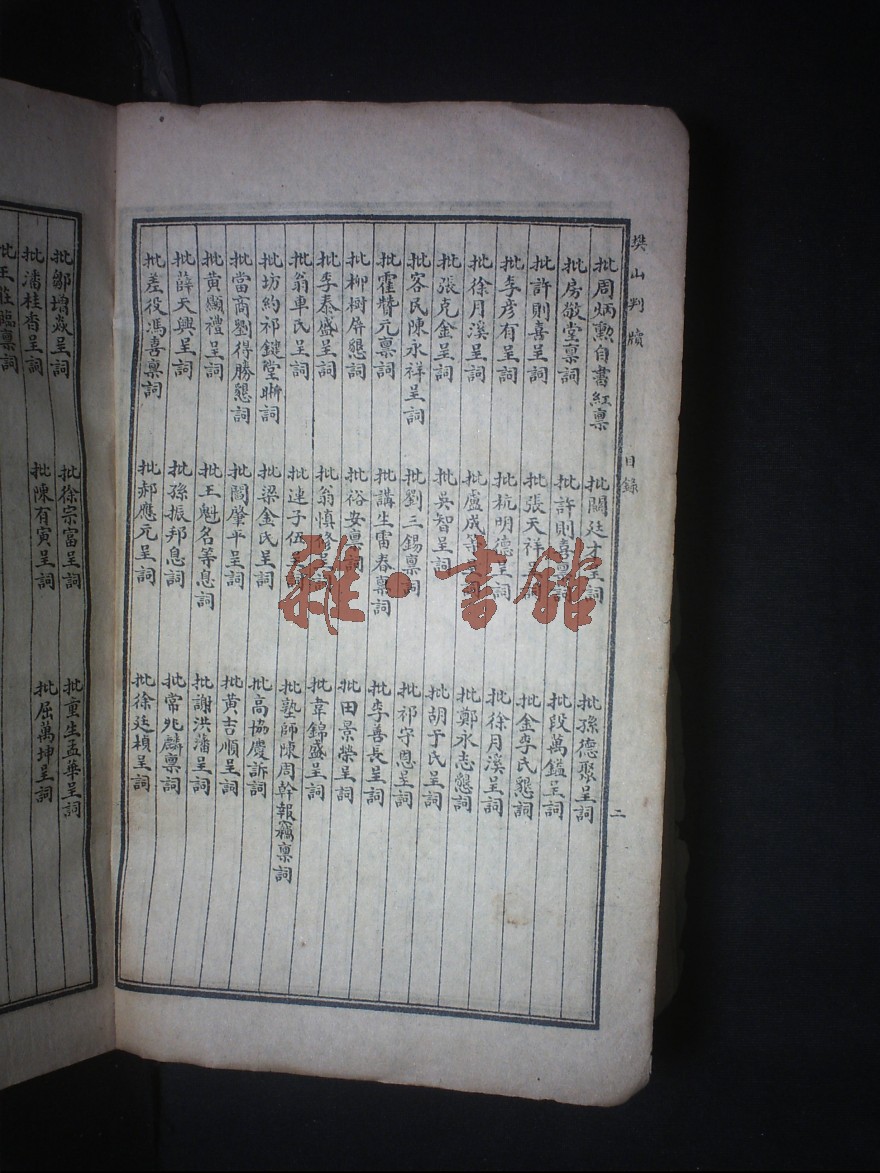 樊山判牘
目錄
二
批周炳勲自書紅稟 批關廷才呈詞 批孫德聚呈詞
批房敬堂稟詞 批許則喜稟詞 批段萬鎰呈詞
批許則喜呈詞 批張天祥呈詞 批金李氏懇詞
批李彥有呈詞 批杭明德呈詞 批徐月溪呈詞
批徐月溪呈詞 批盧成等呈詞 批鄭永志懇詞
批張克金呈詞 批吳智呈詞 批胡于氏呈詞
批客民陳永祥呈詞 批劉三錫稟詞 批祁守恩呈詞
批霍贊元稟詞 批講生雷春稟詞 批李善長呈詞
批柳樹屏懇詞 批裕安稟詞 批田景榮呈詞
批李泰盛呈詞 批翁慎修呈詞 批韋錦盛呈詞
批翁車氏呈詞 批連子伍呈詞 批塾師陳周幹報竊稟詞
批坊約祁鍵堂晰詞 批梁金氏呈詞 批高協慶訴詞
批當商劉得勝懇詞 批閻肇平呈詞 批黃吉順呈詞
批黃顯禮呈詞 批王魁名等息詞 批謝洪藩呈詞
批薛天興呈詞 批孫振邦息詞 批常兆麟稟詞
批差役馮喜稟詞 批郝應元呈詞 批徐廷楨呈詞
批鄒增焱呈詞 批徐宗富呈詞 批童生孟華呈詞
批潘桂香呈詞 批陳有寅呈詞 批屈萬坤呈詞
批王莊臨稟詞
雜·書館